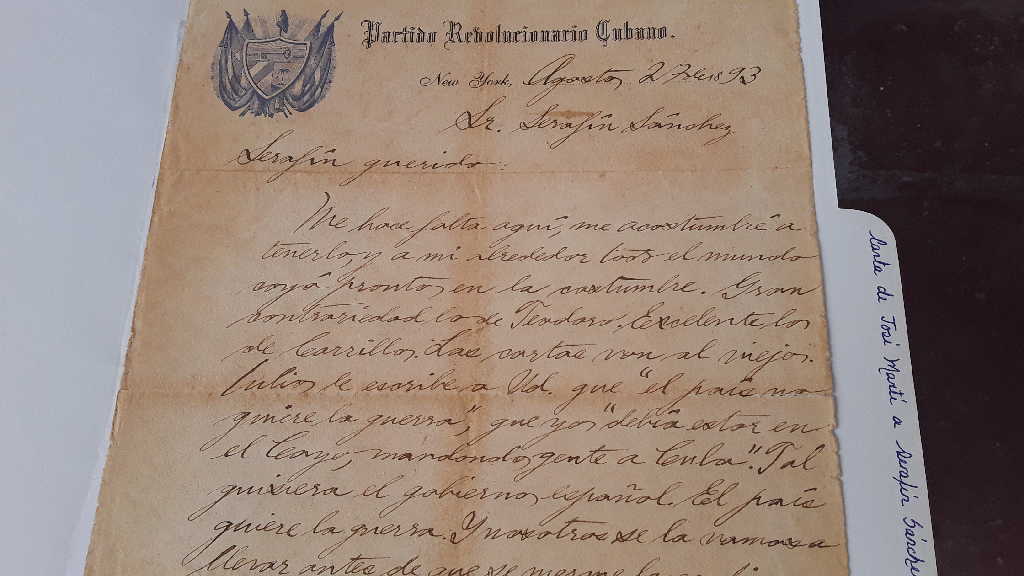 Partido Revolucionario Cubano.
New York, Agosto 27 de 1893
Sr. Serafín Sánchez
Serafín querido:
Me hace falta aquí, me acostumbré a
tenerlo, y a mi alrededor todo el mundo
cayó pronto en la costumbre. Gran
contrariedad lo de Teodoro. Excelente, lo
de Carrillo. Las cartas van al viejo.
Julio le escribe a Ud. que "el país no
quiere la guerra", que yo "debía estar en
el Cayo, mandando gente a Cuba". Tal
quisiera el gobierno español. El país
quiere la guerra. Y nosotros se la vamos a
llevar antes de que se merme la
Carta de José Martí a Serafín Sánche